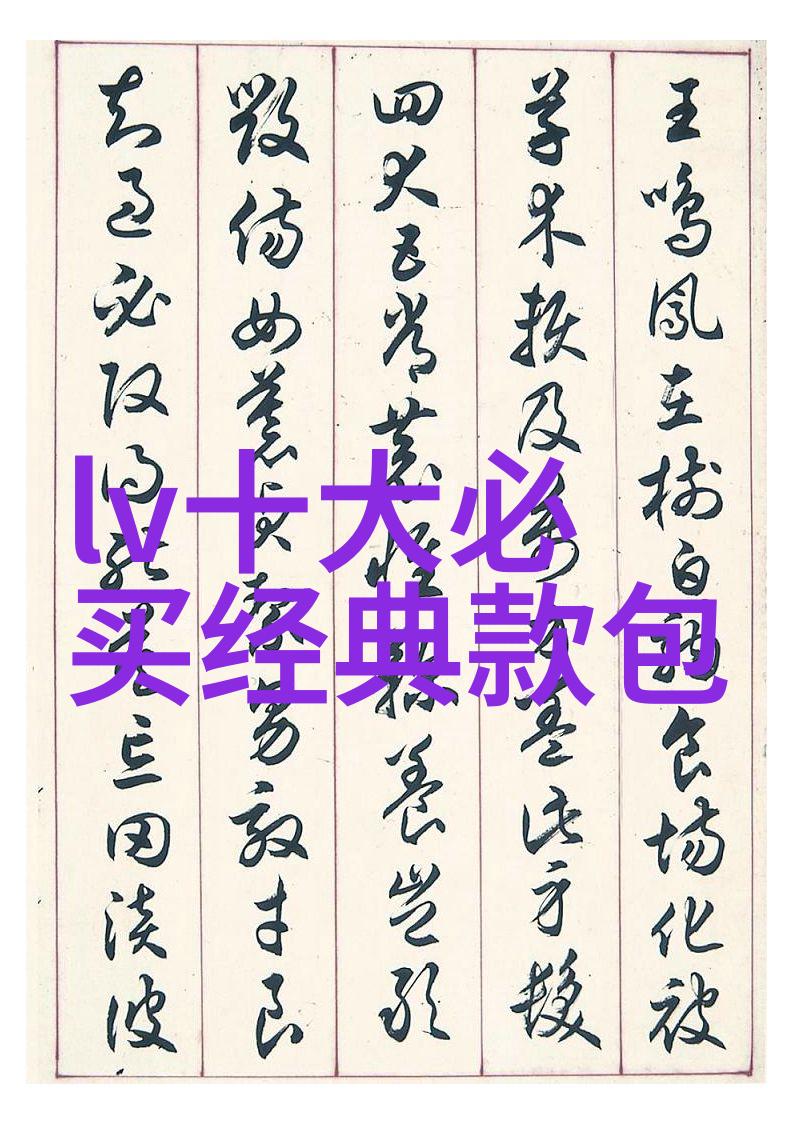 王鳴鳳在樹白駒食場化被
草木賴及萬方蓋此身髮
四大五常恭惟鞠養豈敢
毀傷女慕貞絜男效才良
知過必改得能莫忘罔談彼
lv十大必
买经典款包